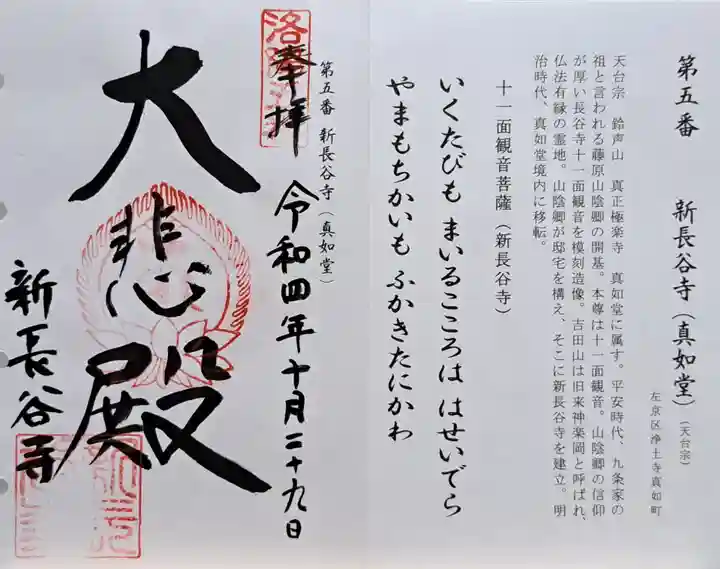 第五番 新長谷寺(真如堂)(天台宗)
左京区浄土寺真如町
天台宗 鈴声山 真正極楽寺 真如堂に属す。平安時代、九条家の
祖と言われる藤原山陰卿の開基。本尊は十一面観音。山陰卿の信仰
が厚い長谷寺十一面観音を模刻造像。吉田山は旧来神楽岡と呼ばれ、
仏法有縁の霊地。山陰卿が邸宅を構え、そこに新長谷寺を建立。明
治時代、真如堂境内に移転。
十一面観音菩薩(新長谷寺)
いくたびも まいるこころは はせいでら
やまもちかいも ふかきたにかわ
第五番 新長谷寺(真如堂)
奉拝
令和四年十月二十九日
大悲殿
新長谷寺